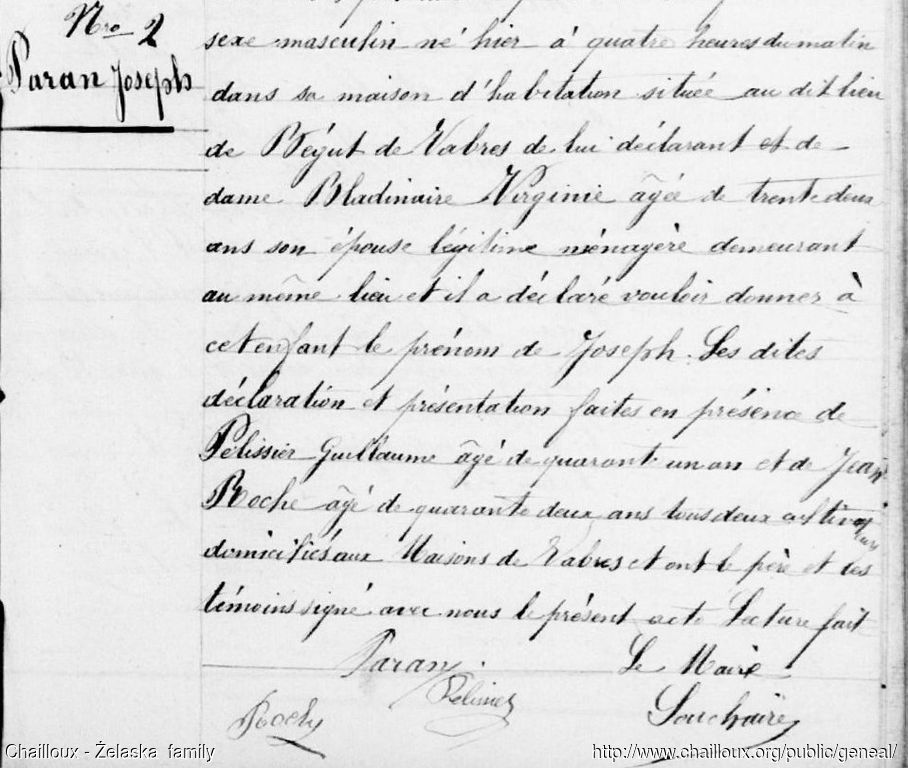 Nro 2
Paran Joseph
sexe masculin né hier à quatre heures du matin
dans sa maison d'habitation située au dit lieu
de Bégut de Vabres de lui déclarant et de
dame Bladinaire Virginie âgée de trente deux
ans son épouse légitime ménagère demeurant
au même lieu et il a déclaré vouloir donner à
cet enfant le prénom de Joseph. Les dites
déclaration et présentation faites en présence de
Pélissier Guillaume âgé de quarante un an et de Jean
Roche âgé de quarante deux ans tous deux cultivateurs
domiciliés aux Maisons de Vabres et ont le père et les
témoins signé avec nous le présent acte Lecture fait
Paran. Le Maire
Roche Pelissier Souchaire
Chailloux - Želaska family
http://www.chailloux.org/public/geneal/